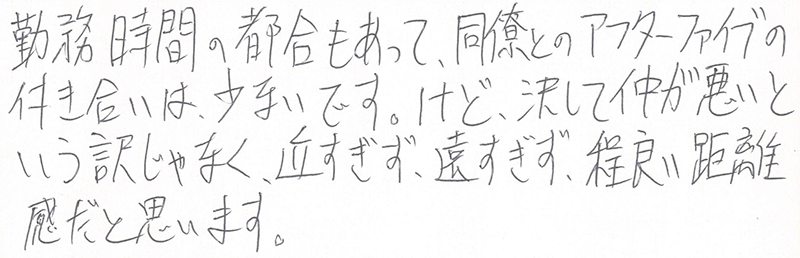 勤務時間の都合もあって、同僚とのアフターファイブの
付き合いは、少ないです。けど、決して仲が悪いと
いう訳じゃなく、近すぎず、遠すぎず、程良い距離
感だと思います。